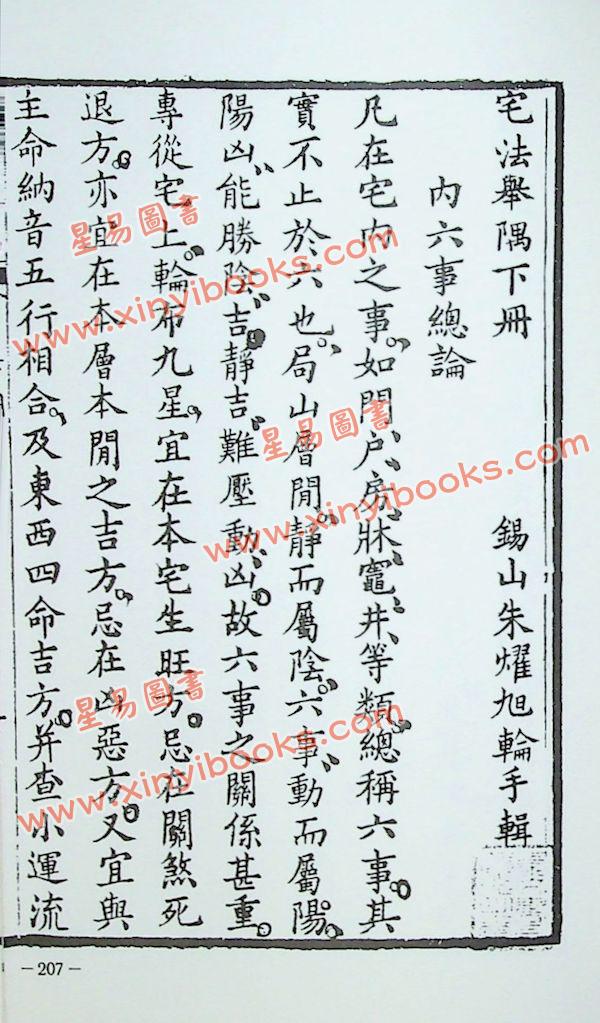 宅法舉隅下冊　錫山朱燿旭輪手輯
內六事總論
凡在宅內之事、如門、戶、房、牀、竈、井、等類總稱六事。其
實不止於六也、局山層間、靜而屬陰。六事、動而屬陽。
陽凶、能勝陰吉。靜吉、難壓動凶。故六事之關係甚重。
專從宅上、輪布九星、宜在本宅生旺方。忌在關煞死
退方。亦宜在本層本間之吉方。忌在凶惡方。又宜與
主命納音五行相合、及東西四命吉方。并查小運流
星易圖書
www.xinyibooks.com
星易圖書
www.xinyibooks.com
星易圖書
www.xinyibooks.com
－207－